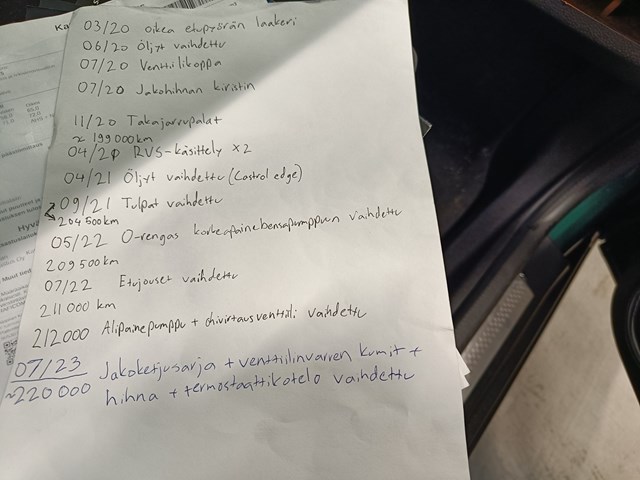 03/20 oikea etupyörän laakeri
06/20 Öljyt vaihdettu
07/20 Venttiilikoppa
07/20 Jakohihnan kiristin
11/20 Takajarrupalat
~ 199 000 km
RVS-käsittely x2
04/21 Öljyt vaihdettu (Castrol edge)
09/21 Tulpat vaihdettu
204 500 km
05/22 O-rengas korkeapainebensapumppuun vaihdettu
209 500 km
07/22 Etujouset vaihdettu
211 000 km
212000 Alipainepumppu + ohivirtausventtiili vaihdettu
07/23 Jakoketjusarja + venttiilinvarren kumit +
~220 000 hihna + termostaattikotelo vaihdettu